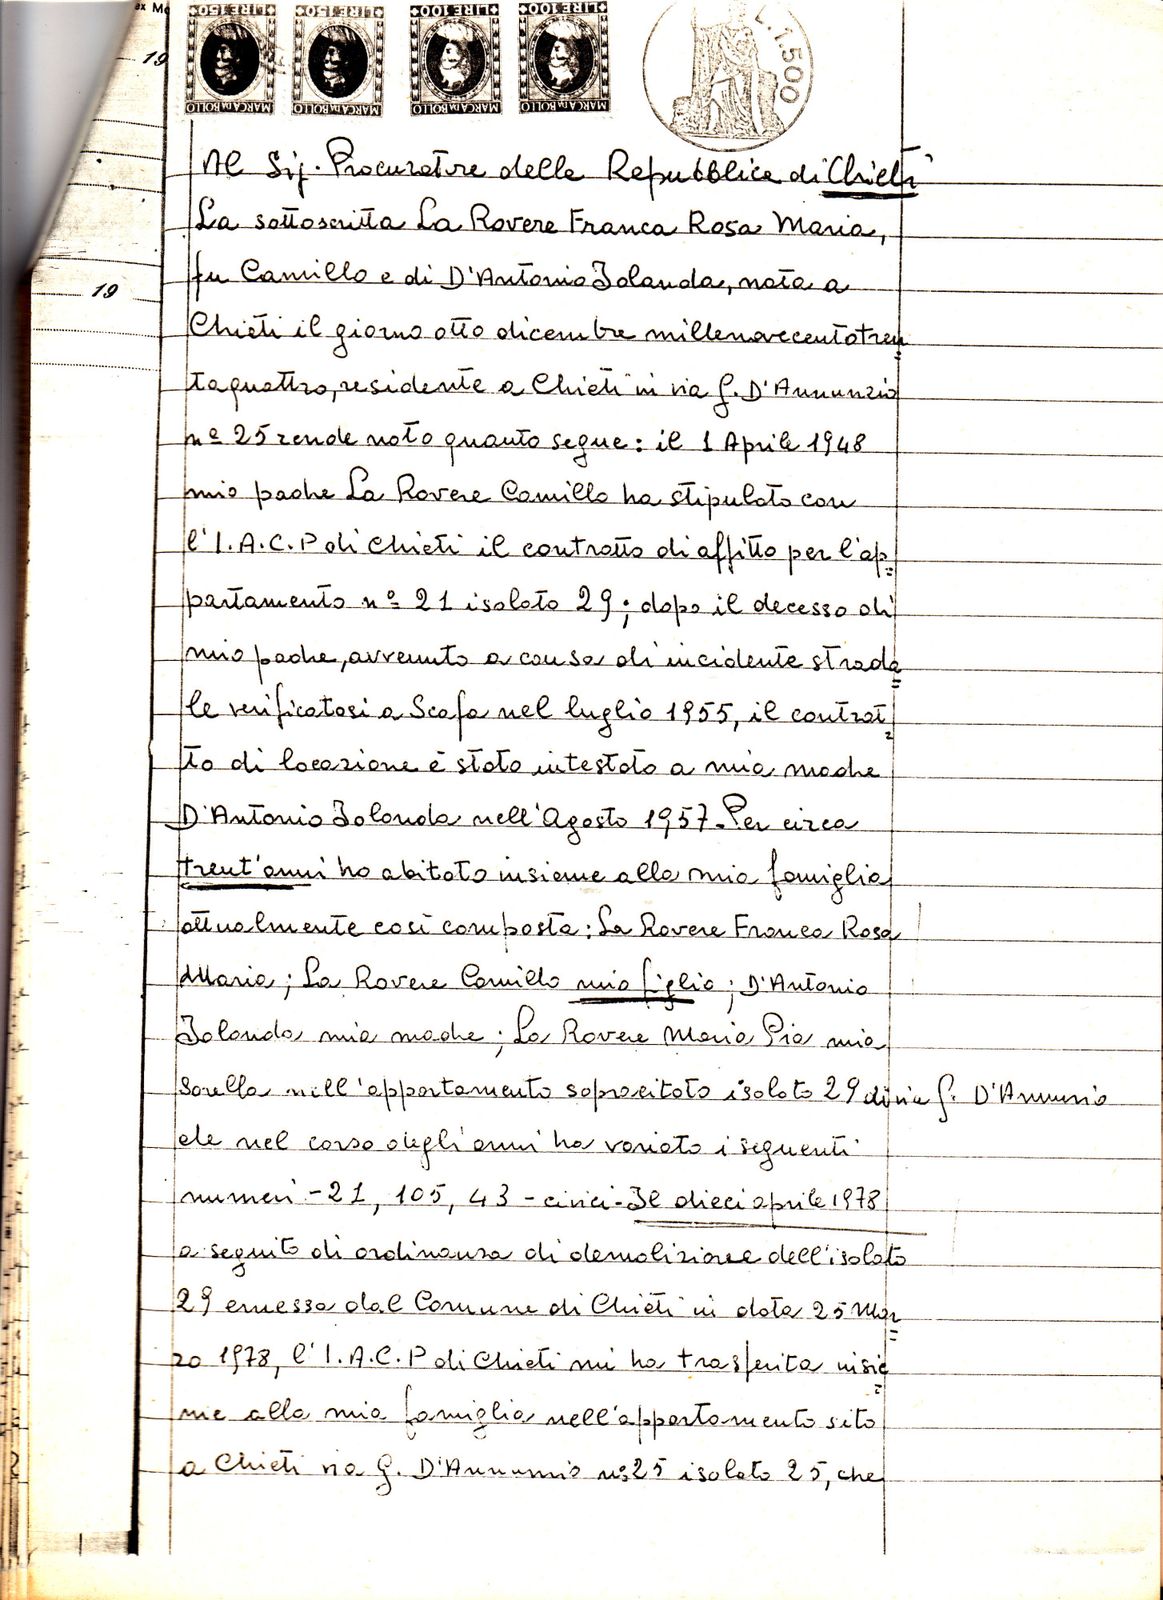 LIRE 150
MARCA DA BOLLO
LIRE 150
MARCA DA BOLLO
LIRE 100
MARCA DA BOLLO
LIRE 100
MARCA DA BOLLO
L.1.500
19
19
Al Sig. Procuratore della Repubblica di Chieti
La sottoscritta La Rovere Franca Rosa Maria,
fu Camillo e di D'Antonio Jolanda, nata a
Chieti il giorno otto dicembre millenovecentotren
taquattro, residente a Chieti in via G. D'Annunzio
nº 25 rende noto quanto segue: il 1 Aprile 1948
mio padre La Rovere Camillo ha stipulato con
l'I.A.C.P di Chieti il contratto di affitto per l'ap=
partamento nº 21 isolato 29; dopo il decesso di
mio padre, avvenuto a causa di incidente strada=
le verificatosi a Scafa nel luglio 1955, il contrat=
to di locazione è stato intestato a mia madre
D'Antonio Jolanda nell'Agosto 1957. Per circa
trent'anni ho abitato insieme alla mia famiglia
attualmente così composta: La Rovere Franca Rosa
Maria; La Rovere Camillo mio figlio; D'Antonio
Jolanda mia madre; La Rovere Maria Pia mia
sorella nell'appartamento sopracitato isolato 29 di via G. D'Annunzio
che nel corso degli anni ha variato i seguenti
numeri - 21, 105, 43 - civici - Il dieci aprile 1978
a seguito di ordinanza di demolizione dell'isolato
29 emessa dal Comune di Chieti in data 25 Mar=
zo 1978, l'I.A.C.P di Chieti mi ha trasferita insie=
me alla mia famiglia nell'appartamento sito
a Chieti via G. D'Annunzio nº 25 isolato 25, che